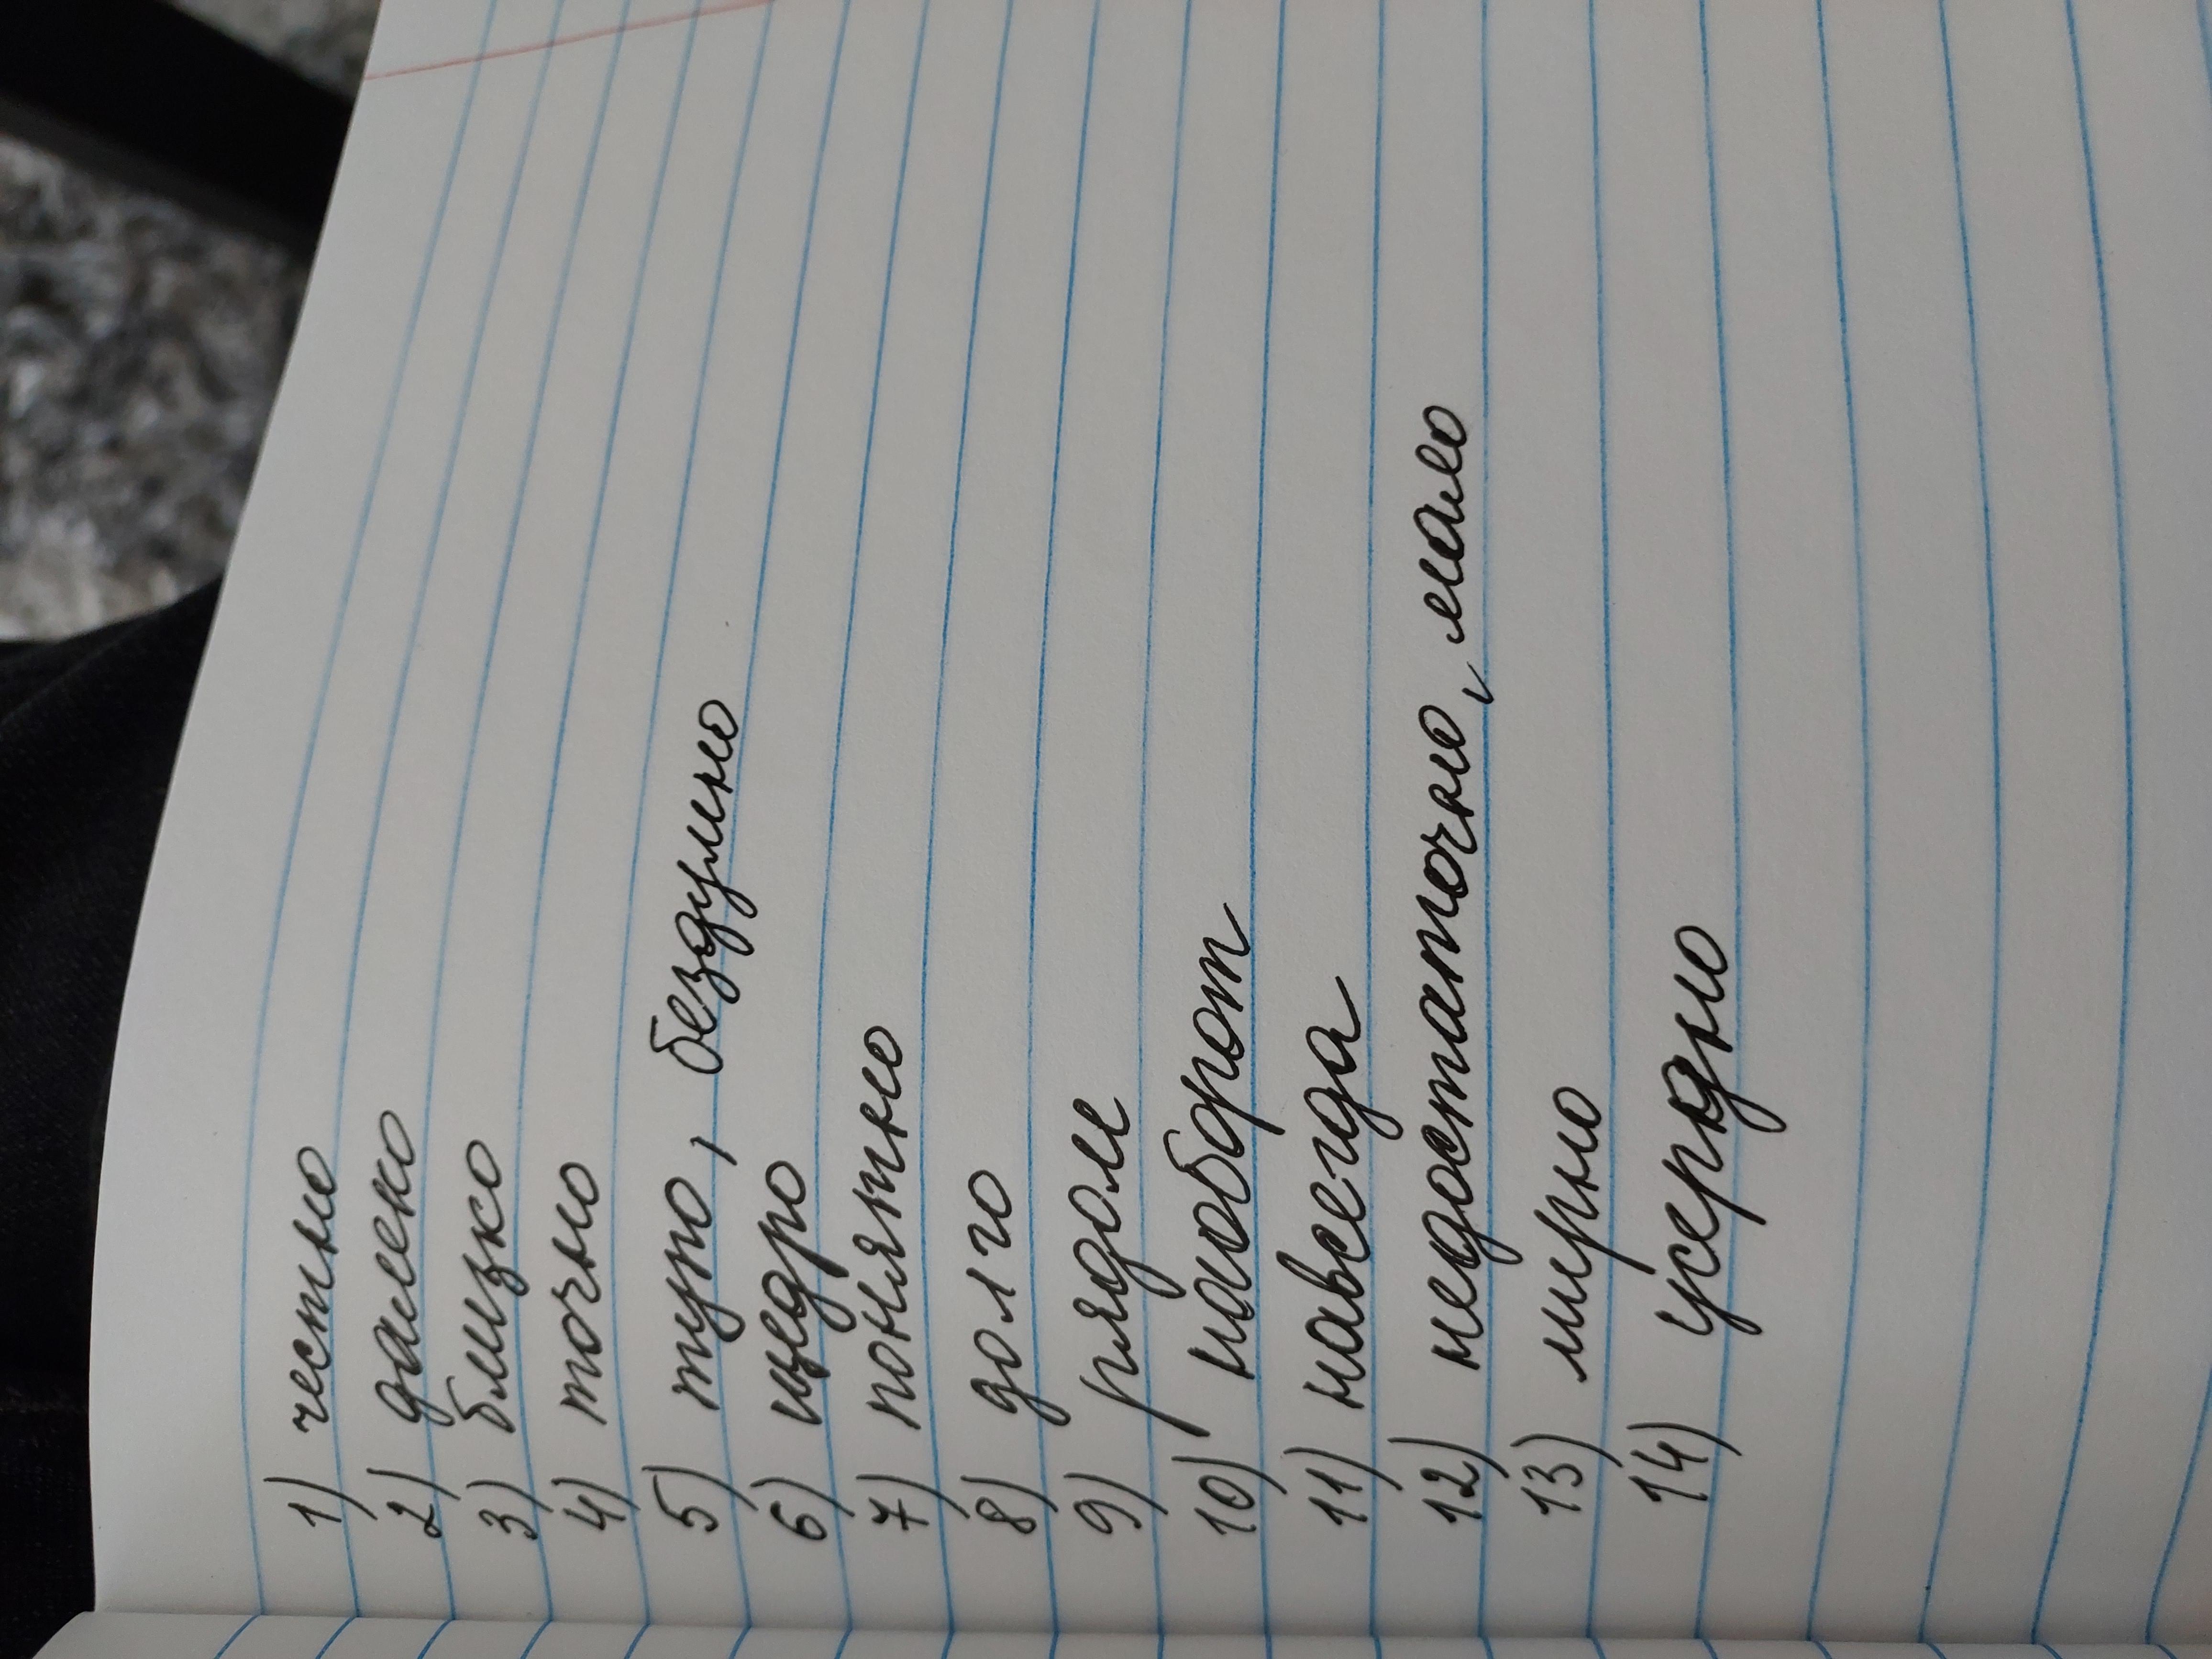 1) честно
2) далеко
3) близко
4) точно
5) тупо, бездумно
6) щедро
7) понятно
8) долго
9) рядом
10) наоборот
11) навсегда
12) недостаточно, мало
13) мирно
14) усердно